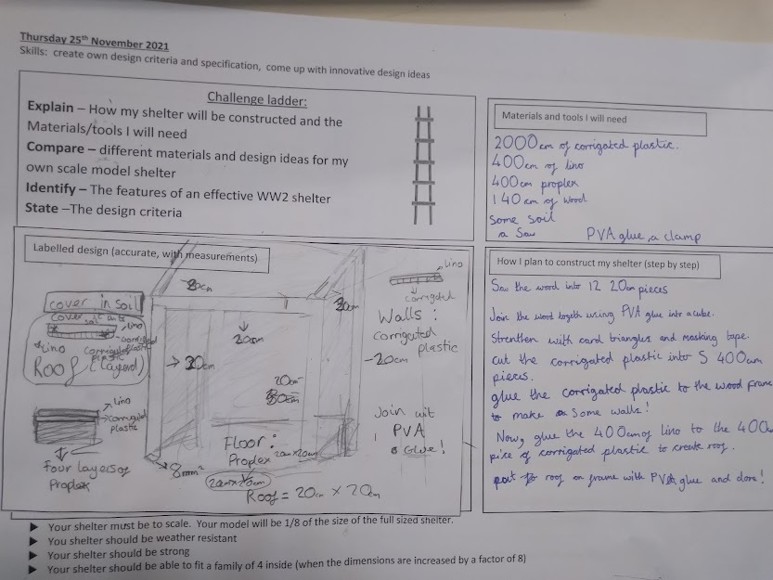 Thursday 25th November 2021
Skills: create own design criteria and specification, come up with innovative design ideas
Challenge ladder:
Explain – How my shelter will be constructed and the
Materials/tools I will need
Compare – different materials and design ideas for my
own scale model shelter
Identify – The features of an effective WW2 shelter
State –The design criteria
Materials and tools I will need
2000cm of corrigated plastic.
400cm of lino
400cm proplex
140cm of wood
Some soil
a Saw PVA glue, a clamp
Labelled design (accurate, with measurements)
cover in soil
lino
corrigated
plastic
Roof (layered)
20cm
20cm
lino
corrigated
Walls:
corrigated
plastic
-20cm
20cm
lino
corrigated
plastic
Four layers of
Proplex
8mm
Floor:
Proplex
Roof = 20cm X 20cm
Join wit
PVA
Glue!
How I plan to construct my shelter (step by step)
Saw the wood into 12 20cm pieces
Join the wood togeth using PVA glue into a cube.
Strenthen with card triangles and masking tape.
cut the corrigated plastic into 5 400cm
pieces.
glue the corrigated plastic to the wood frame
to make some walls!
Now, glue the 400cm of lino to the
piece of corrigated plastic to create roof.
put roof on frame with PVA glue and done!
Your shelter must be to scale. Your model will be 1/8 of the size of the full sized shelter.
You shelter should be weather resistant
Your shelter should be strong
Your shelter should be able to fit a family of 4 inside (when the dimensions are increased by a factor of 8)